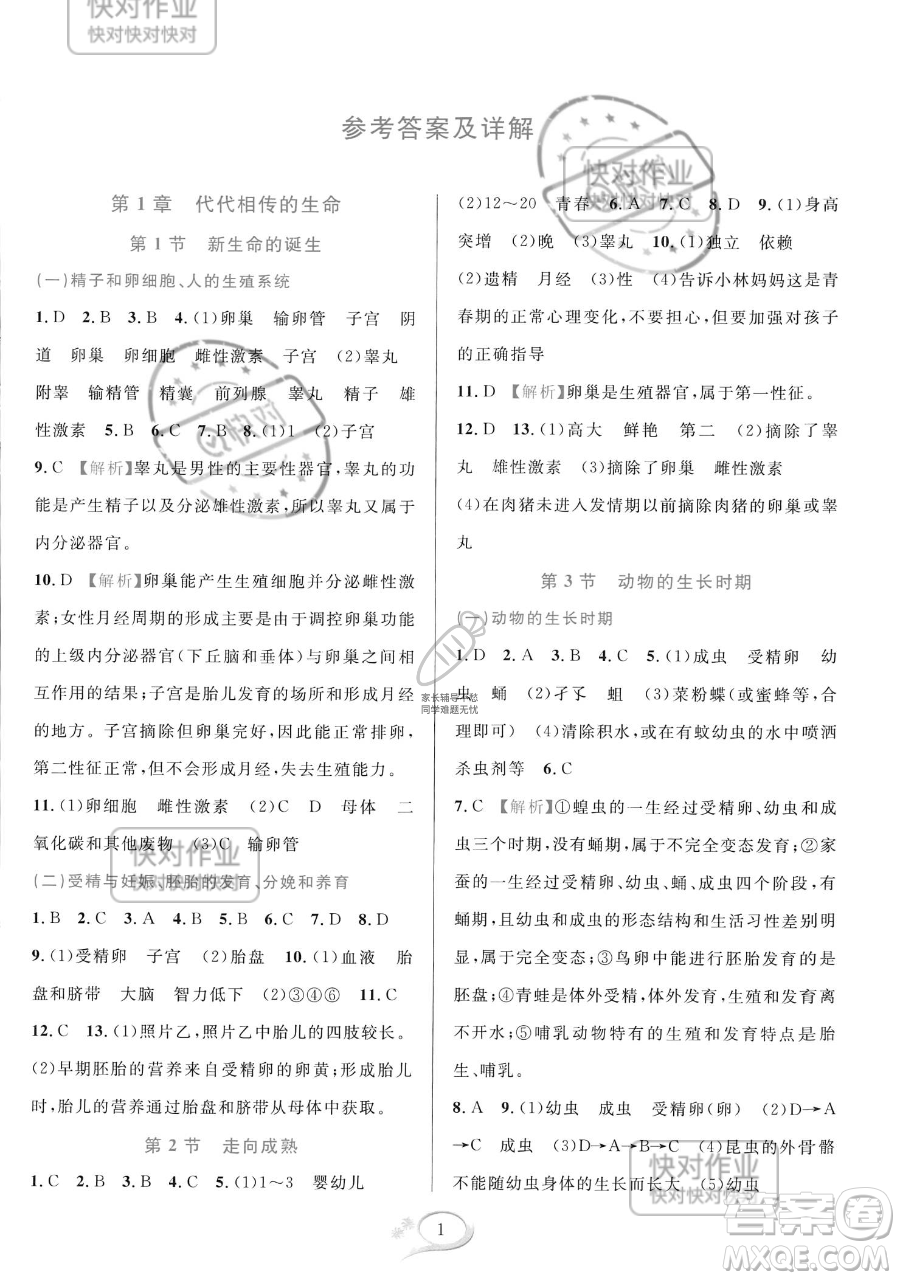 快对作业
快对快对快对
参考答案及详解
第1章 代代相传的生命
第1节 新生命的诞生
(一)精子和卵细胞、人的生殖系统
1.D 2.B 3.B 4.(1)卵巢 输卵管 子宫 阴
道 卵巢 卵细胞 雌性激素 子宫 (2)睾丸
附睾 输精管 精囊 前列腺 睾丸 精子 雄
性激素 5.B 6.C 7.B 8.(1)1 (2)子宫
9.C 【解析】睾丸是男性的主要性器官,睾丸的功
能是产生精子以及分泌雄性激素,所以睾丸又属于
内分泌器官。
10.D 【解析】卵巢能产生生殖细胞并分泌雌性激
素;女性月经周期的形成主要由于调控卵巢功能
的上级内分泌器官(下丘脑和垂体)与卵巢相互
作用的结果;子宫是胎儿发育的场所和形成月经
的地方。子宫摘除但卵巢完好,因此能正常排卵,
第二性征正常,但不能形成月经,失去生殖能力。
11.(1)卵细胞 雌性激素 (2)C D 母体 二
氧化碳和其他废物 (3)C 输卵管
(二)受精与妊娠、胚胎的发育、分娩和养育
1.B 2.C 3.A 4.B 5.D 6.D 7.C 8.D
9.(1)受精卵 子宫 (2)胎盘 10.(1)血液 胎
盘和脐带 大脑 智力低下 (2)③④⑥ 11.C
12.C 13.(1)照片乙,照片乙中胎儿的四肢较长。
(2)早期胚胎的营养来自受精卵的卵黄;形成胎儿
时,胎儿的营养通过胎盘和脐带从母体中获取。
第2节 走向成熟
1.C 2.B 3.A 4.C 5.(1)1～3 婴幼儿
(2)12～20 青春 6.A 7.C 8.D 9.(1)身高
突增 (2)晚 (3)睾丸 10.(1)独立 依赖
(2)遗精 月经 (3)性 (4)告诉小林妈妈这是青
春期的正常心理变化,不要担心,但要加强对孩子
的正确指导
11.D 【解析】卵巢是生殖器官,属于第一性征。
12.D 13.(1)高大 鲜艳 第二 (2)摘除了睾
丸 雄性激素 (3)摘除了卵巢 雌性激素
(4)在肉猪未进入发情期以前摘除肉猪的卵巢或睾
丸
第3节 动物的生长时期
(一)动物的生长时期
1.D 2.A 3.A 4.C 5.(1)成虫 受精卵 幼
虫 蛹 (2)孑孓 蛆 (3)菜粉蝶(或蜜蜂等,合
理即可) (4)清除积水,或在有幼虫的水中喷洒
杀虫剂等 6.C
7.C 【解析】①蝗虫的一生经过受精卵、幼虫和成
虫三个时期,没有蛹期,属于不完全变态发育;②家
蚕的一生经过受精卵、幼虫、蛹、成虫四个阶段,有
蛹期,且幼虫和成虫的形态结构和生活习性差别明
显,属于完全变态;③鸟卵中能进行胚胎发育的是
胚盘;④青蛙是体外受精,体外发育,生殖和发育离
不开水;⑤哺乳动物特有的生殖和发育特点是胎
生、哺乳。
8.A 9.(1)幼虫 成虫 受精卵(卵) (2)D→A
→C 成虫 (3)D→A→B→C (4)昆虫的外骨骼
不能随幼虫身体的生长而长大 (5)幼虫
快对作业
快对快对快对
快对
家长辅导不愁
同学难题无忧
快对作业
快对快对快对
快对作业
快对快对快对
1
答案圈
MXQE.COM